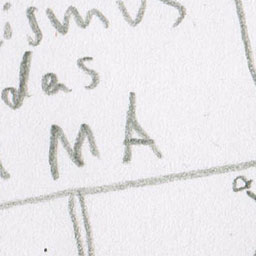 ismus
das
MA